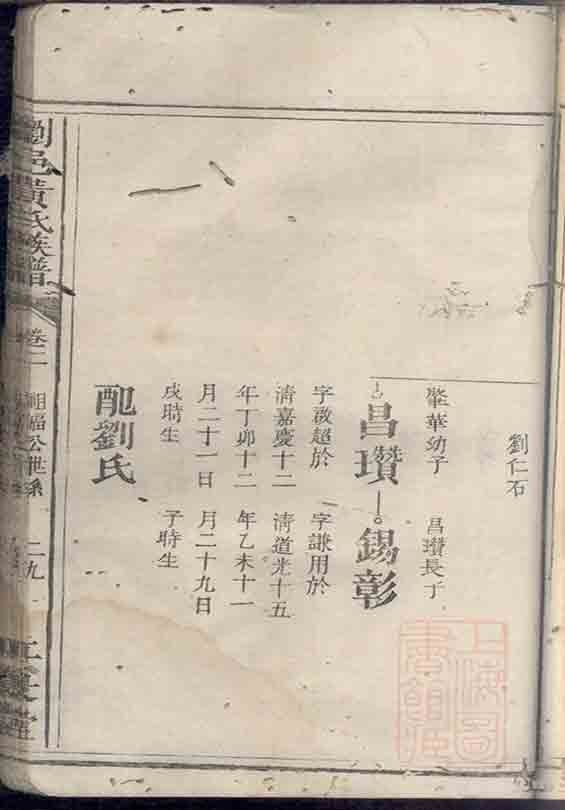 劉仁石
華幼子
昌瓚長子
昌瓚
錫彰
字啟超於
清嘉慶十二
年丁卯十二
月二十一日
戌時生
字謙用於
清道光十五
年乙未十一
月二十九日
子時生
配劉氏
瀏邑黃氏族譜
卷二
祖福公世系
二九